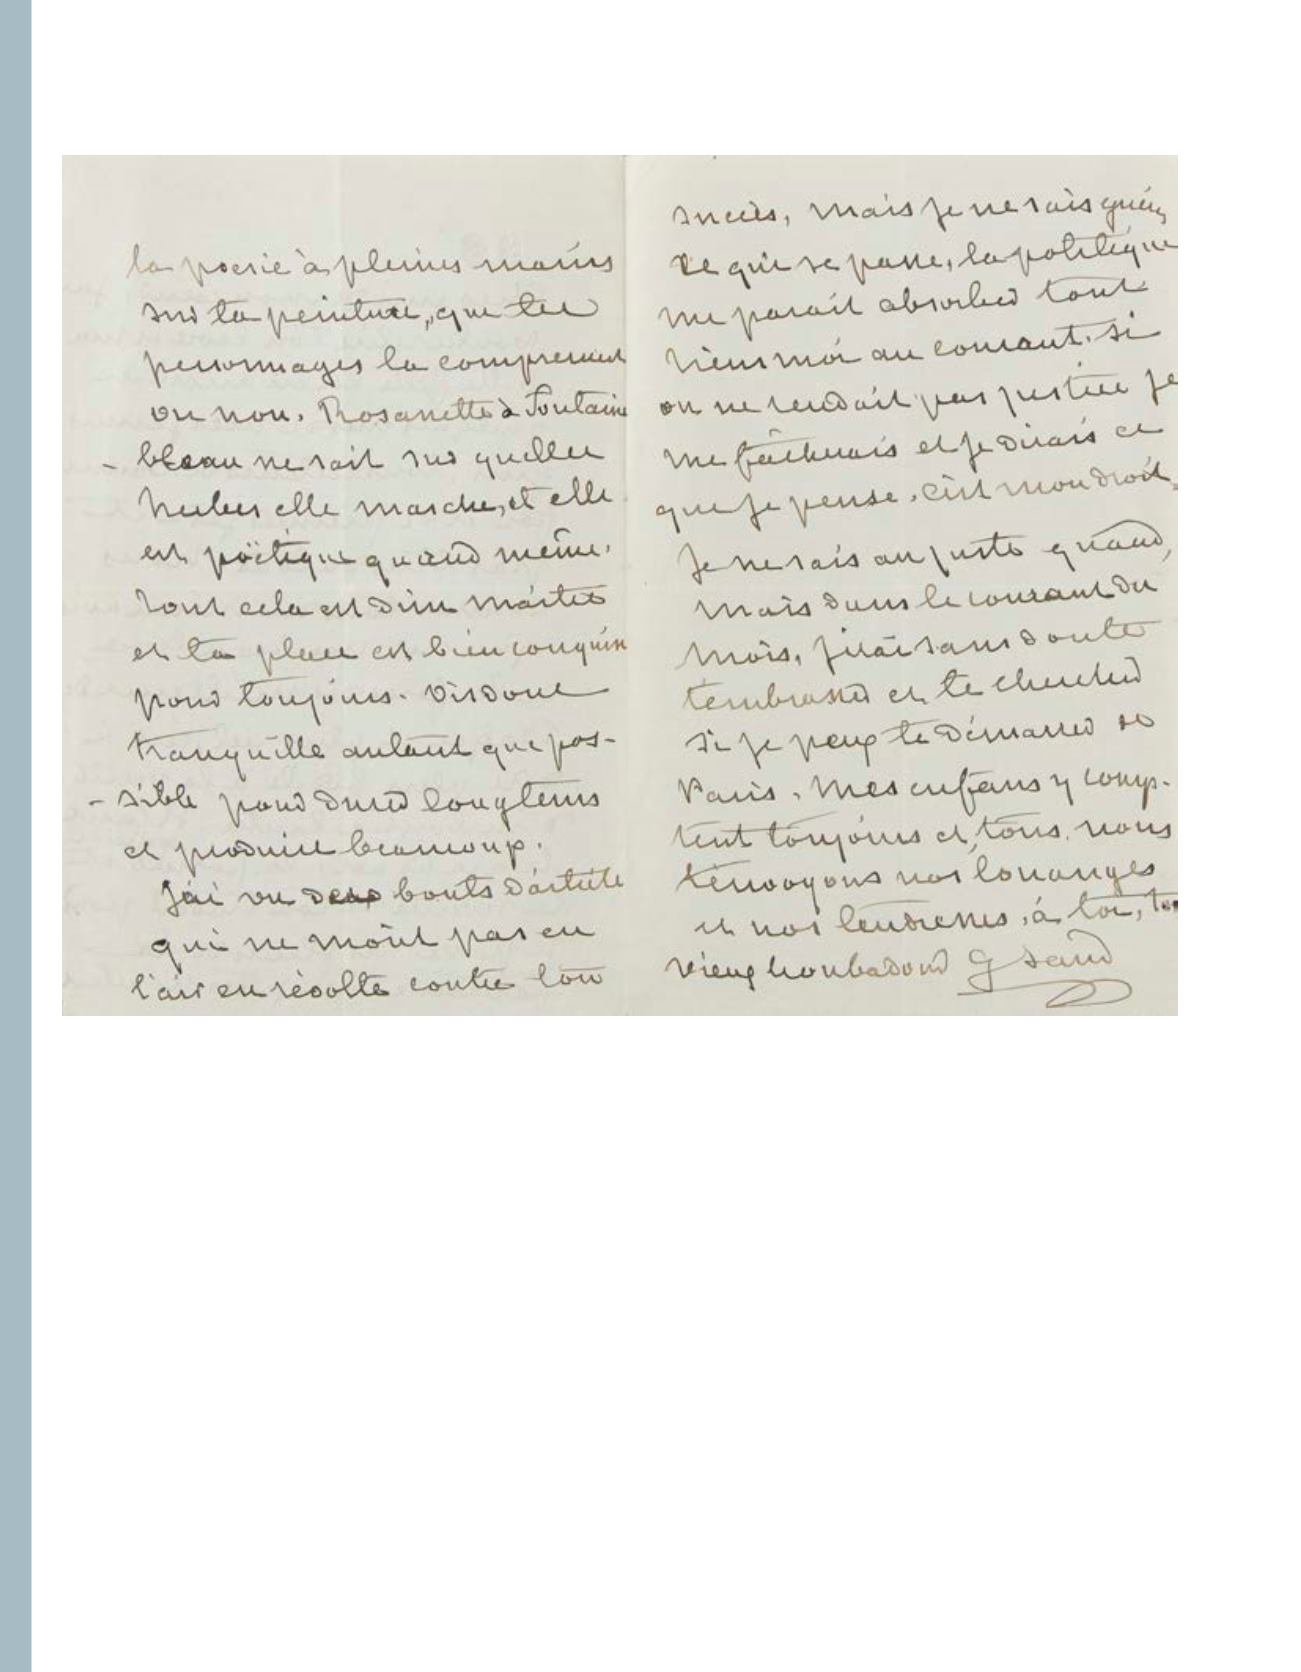 la poesie à pleines mains
sur ta peinture, que tes
personnages la comprennent
ou non. Rosanette à Fontaine
- bleau ne sait sur quelles
herbes elle marche, et elle
est poëtique quand même.
Tout cela est d'un maitre
et ta place est bien conquise
pour toujours. Vis donc
tranquille autant que pos-
- sible pour durer longtems
et produire beaucoup.
J'ai vu deux bouts d'article
qui ne m'ont pas eu
l'air en révolte contre ton
succès, mais je ne sais guères
ce qui se passe, la politique
me parait absorber tout
tiens moi au courant. Si
on ne rendait pas justice je
me fâcherais et je dirais ce
que je pense. C'est mon droit.
Je ne sais au juste quand,
mais dans le courant du
mois, j'irai sans doute
t'embrasser et te chercher
si je peux te démarrer de
Paris. Mes enfans y comp-
tent toujours et, tous, nous
t'envoyons nos louanges
et nos tendresses, à toi, ton
vieux troubadour G Sand